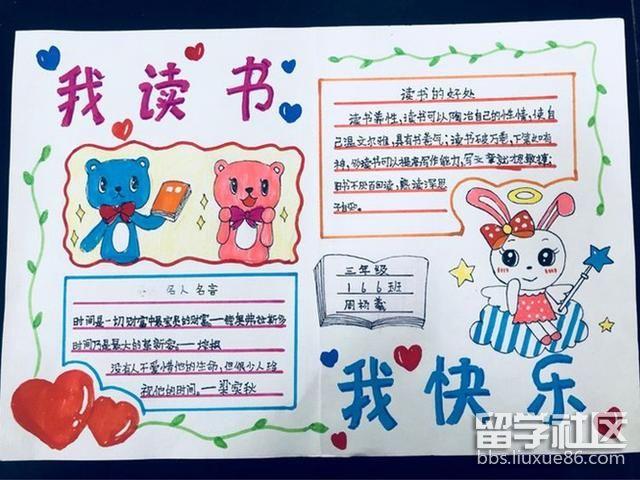 我读书
读书的好处
读书养性,读书可以陶冶自己的性情,使自
己温文尔雅,具有书卷气;读书破万卷,下笔如有
神,多读书可以提高写作能力,写文章就才思敏捷;
旧书不厌百回读,熟读深思
子自知。
名人名言
时间是一切财富中最宝贵的财富。——德奥弗拉斯多
时间乃是最大的革新家——培根
没有人不爱惜他的生命,但很少人珍
视他的时间。——梁实秋
三年级
166班
周杨
我快乐
留学社区
bbs.liuxue86.com